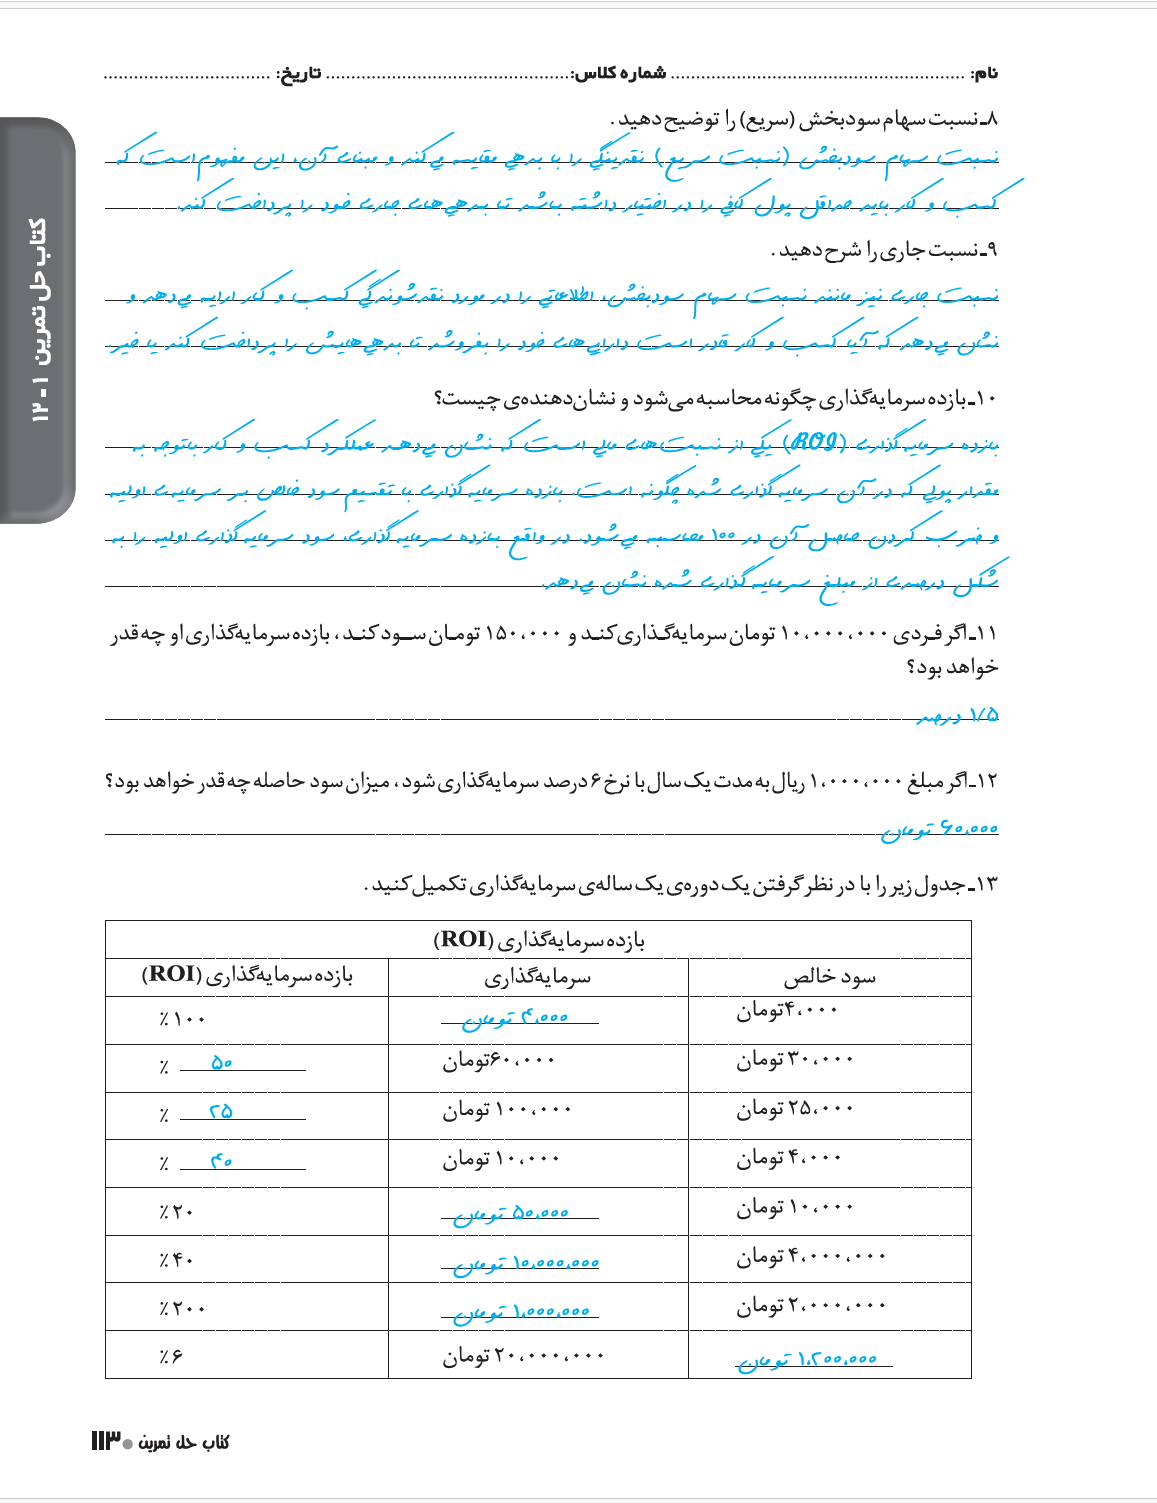 نام: ........................ شماره کلاس: ........................ تاریخ: ........................
۸ـ نسبت سهام سودبخش (سریع) را توضیح دهید.
نسبت سهام سودبخش (نسبت سریع) نقدینگی را با بدهی مقایسه می‌کند و مبنای آن، این مفهوم است که
کسب و کار باید حداقل پول کافی را در اختیار داشته باشد تا بدهی‌های جاری خود را پرداخت کند.
۹ـ نسبت جاری را شرح دهید.
نسبت جاری نیز مانند نسبت سهام سودبخش، اطلاعاتی را در مورد نقدشوندگی کسب و کار ارایه می‌دهد و
نشان می‌دهد که آیا کسب و کار قادر است دارایی‌های خود را بفروشد تا بدهی‌هایش را پرداخت کند یا خیر.
۱۰ـ بازده سرمایه‌گذاری چگونه محاسبه می‌شود و نشان‌دهنده‌ی چیست؟
بازده سرمایه‌گذاری (ROI) یکی از نسبت‌های مالی است که نشان می‌دهد عملکرد کسب و کار باتوجه به
مقدار پولی که در آن سرمایه‌گذاری شده چگونه است. بازده سرمایه‌گذاری با تقسیم سود خالص بر سرمایه‌ی اولیه
و ضرب کردن حاصل آن در ۱۰۰ محاسبه می‌شود. در واقع بازده سرمایه‌گذاری، سود سرمایه‌گذاری اولیه را به
شکل درصدی از مبلغ سرمایه‌گذاری شده نشان می‌دهد.
۱۱ـ اگر فردی ۱۰،۰۰۰،۰۰۰ تومان سرمایه‌گذاری کند و ۱۵۰،۰۰۰ تومان سود کند، بازده سرمایه‌گذاری او چه قدر
خواهد بود؟
۱/۵ درصد
۱۲ـ اگر مبلغ ۱،۰۰۰،۰۰۰ ریال به مدت یک سال با نرخ ۶ درصد سرمایه‌گذاری شود، میزان سود حاصله چه قدر خواهد بود؟
۶۰،۰۰۰ تومان
۱۳ـ جدول زیر را با در نظر گرفتن یک دوره‌ی یک ساله‌ی سرمایه‌گذاری تکمیل کنید.
بازده سرمایه‌گذاری (ROI)
سود خالص سرمایه‌گذاری بازده سرمایه‌گذاری (ROI)
۴،۰۰۰ تومان ۴،۰۰۰ تومان ۱۰۰ ٪
۳۰،۰۰۰ تومان ۶۰،۰۰۰ تومان ۵۰ ٪
۲۵،۰۰۰ تومان ۱۰۰،۰۰۰ تومان ۲۵ ٪
۴،۰۰۰ تومان ۱۰،۰۰۰ تومان ۴۰ ٪
۱۰،۰۰۰ تومان ۵۰،۰۰۰ تومان ۲۰ ٪
۴،۰۰۰،۰۰۰ تومان ۱۰،۰۰۰،۰۰۰ تومان ۴۰ ٪
۲،۰۰۰،۰۰۰ تومان ۱،۰۰۰،۰۰۰ تومان ۲۰۰ ٪
۱،۲۰۰،۰۰۰ تومان ۲۰،۰۰۰،۰۰۰ تومان ۶ ٪
کتاب حل تمرین ۱ ـ ۱۲
کتاب حل تمرین ۱۱۳